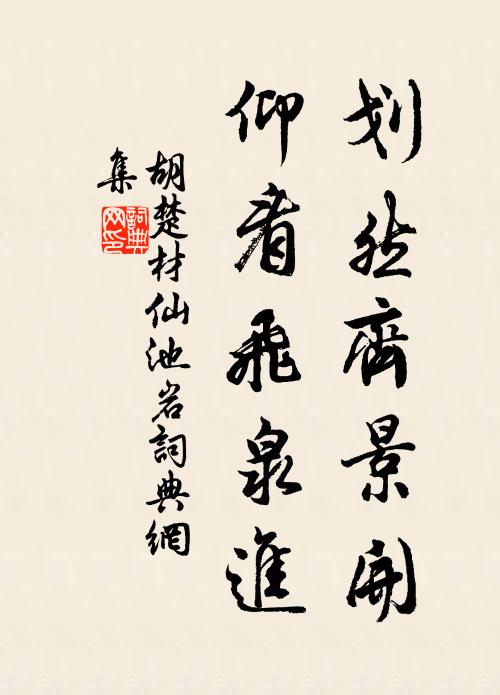 划然齊景開
仰看飛泉進
胡楚材仙池岩詞典網
集
詞典網印